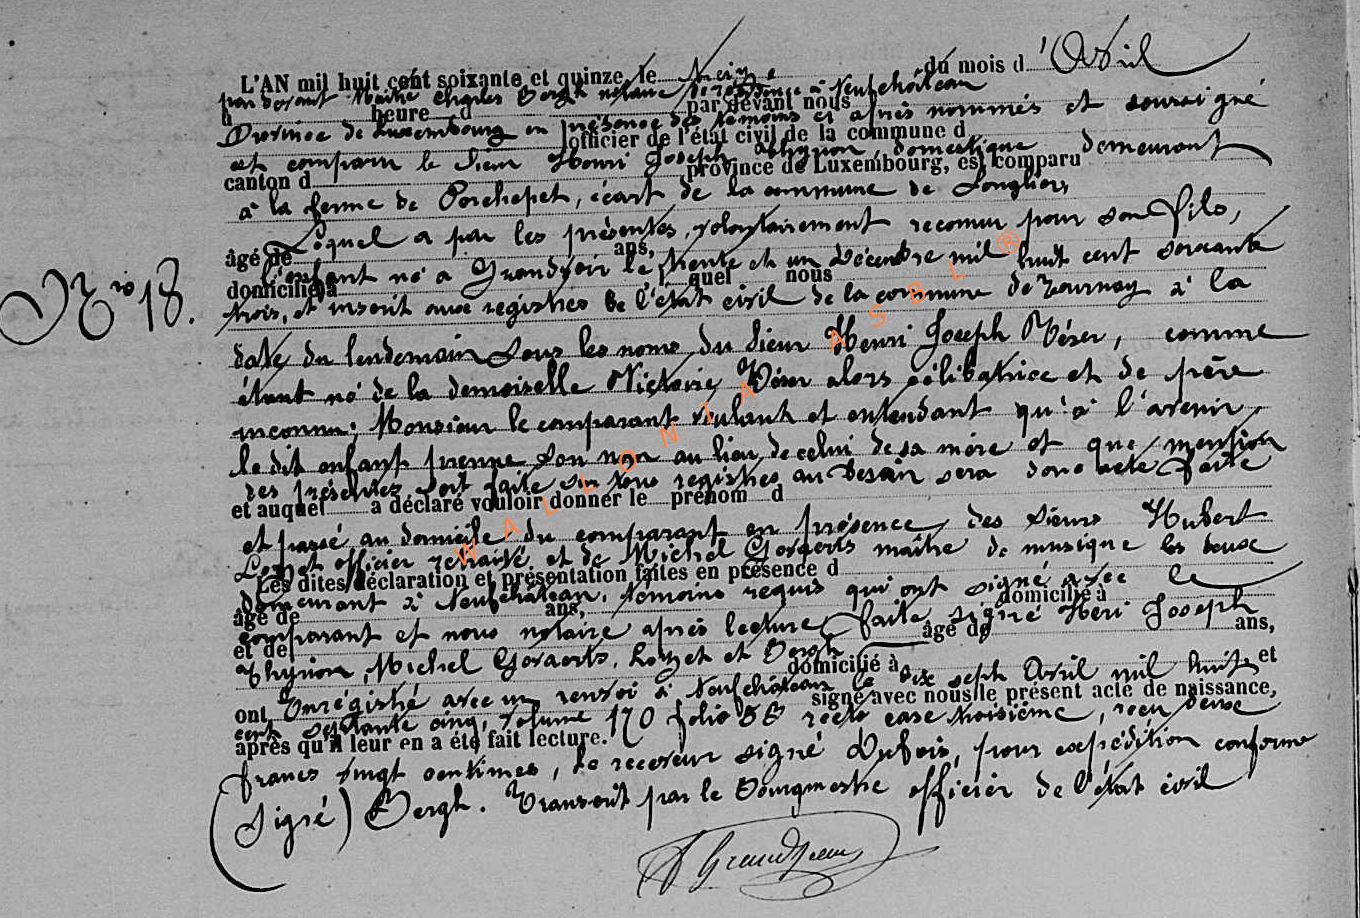 L'AN mil huit cent soixante et quinze le treize du mois d'Avril
par devant Maître Charles Bergh notaire de résidence à Neufchâteau
à heure d par devant nous
Province de Luxembourg en présence des témoins ci après nommés et soussigné
officier de l'état civil de la commune d
est comparu le sieur Henri Joseph Thyrion, domestique demeurant
canton d province de Luxembourg, est comparu
à la ferme de Porchepet, écart de la commune de Longlier,
Lequel a par les présentes, volontairement reconnu pour son fils,
âgé de ans,
l'enfant né à Grandvoir le trente et un Décembre mil huit cent soixante
domicilié à quel nous
trois, et inscrit aux registres de l'état civil de la commune de Tournay à la
date du lendemain sous les noms du sieur Henri Joseph Véser, comme
étant né de la demoiselle Victoire Véser alors célibatrice et de père
inconnu; Monsieur le comparant voulant et entendant qu'à l'avenir,
le dit enfant prenne son nom au lieu de celui de sa mère et que mention
des présentes soit faite sur tous registres au besoin sera dont acte Faite
et auquel a déclaré vouloir donner le prénom d
et passé au domicile du comparant en présence des sieurs Hubert
officier retraité et de Michel Goraerts maître de musique les deux
Les dites déclaration et présentation faites en présence d
demeurant à Neufchâteau, témoins requis qui ont signé avec le
âgé de ans, domicilié à
comparant et nous notaire après lecture faite signé Henri Joseph
et de âgé de ans,
Thyrion, Michel Goraerts, et Bergh
domicilié à et
Enrégistré avec un renvoi à Neufchâteau le dix sept Avril mil huit
ont signé avec nous le présent acte de naissance,
cent septante cinq, volume 170 folio 88 recto case troisième, reçu deux
après qu'il leur en a été fait lecture.
francs vingt centimes, Le receveur signé Dubois, pour expédition conforme
(Signé) Bergh. Transcrit par le Bourgmestre officier de l'état civil
Nro 18.
Grandjean
WALLONIA ASBL ®